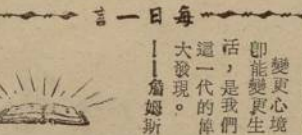 每日一言
變更心境
卽能變更生
活，是我們
這一代的偉
大發現。
——詹姆斯